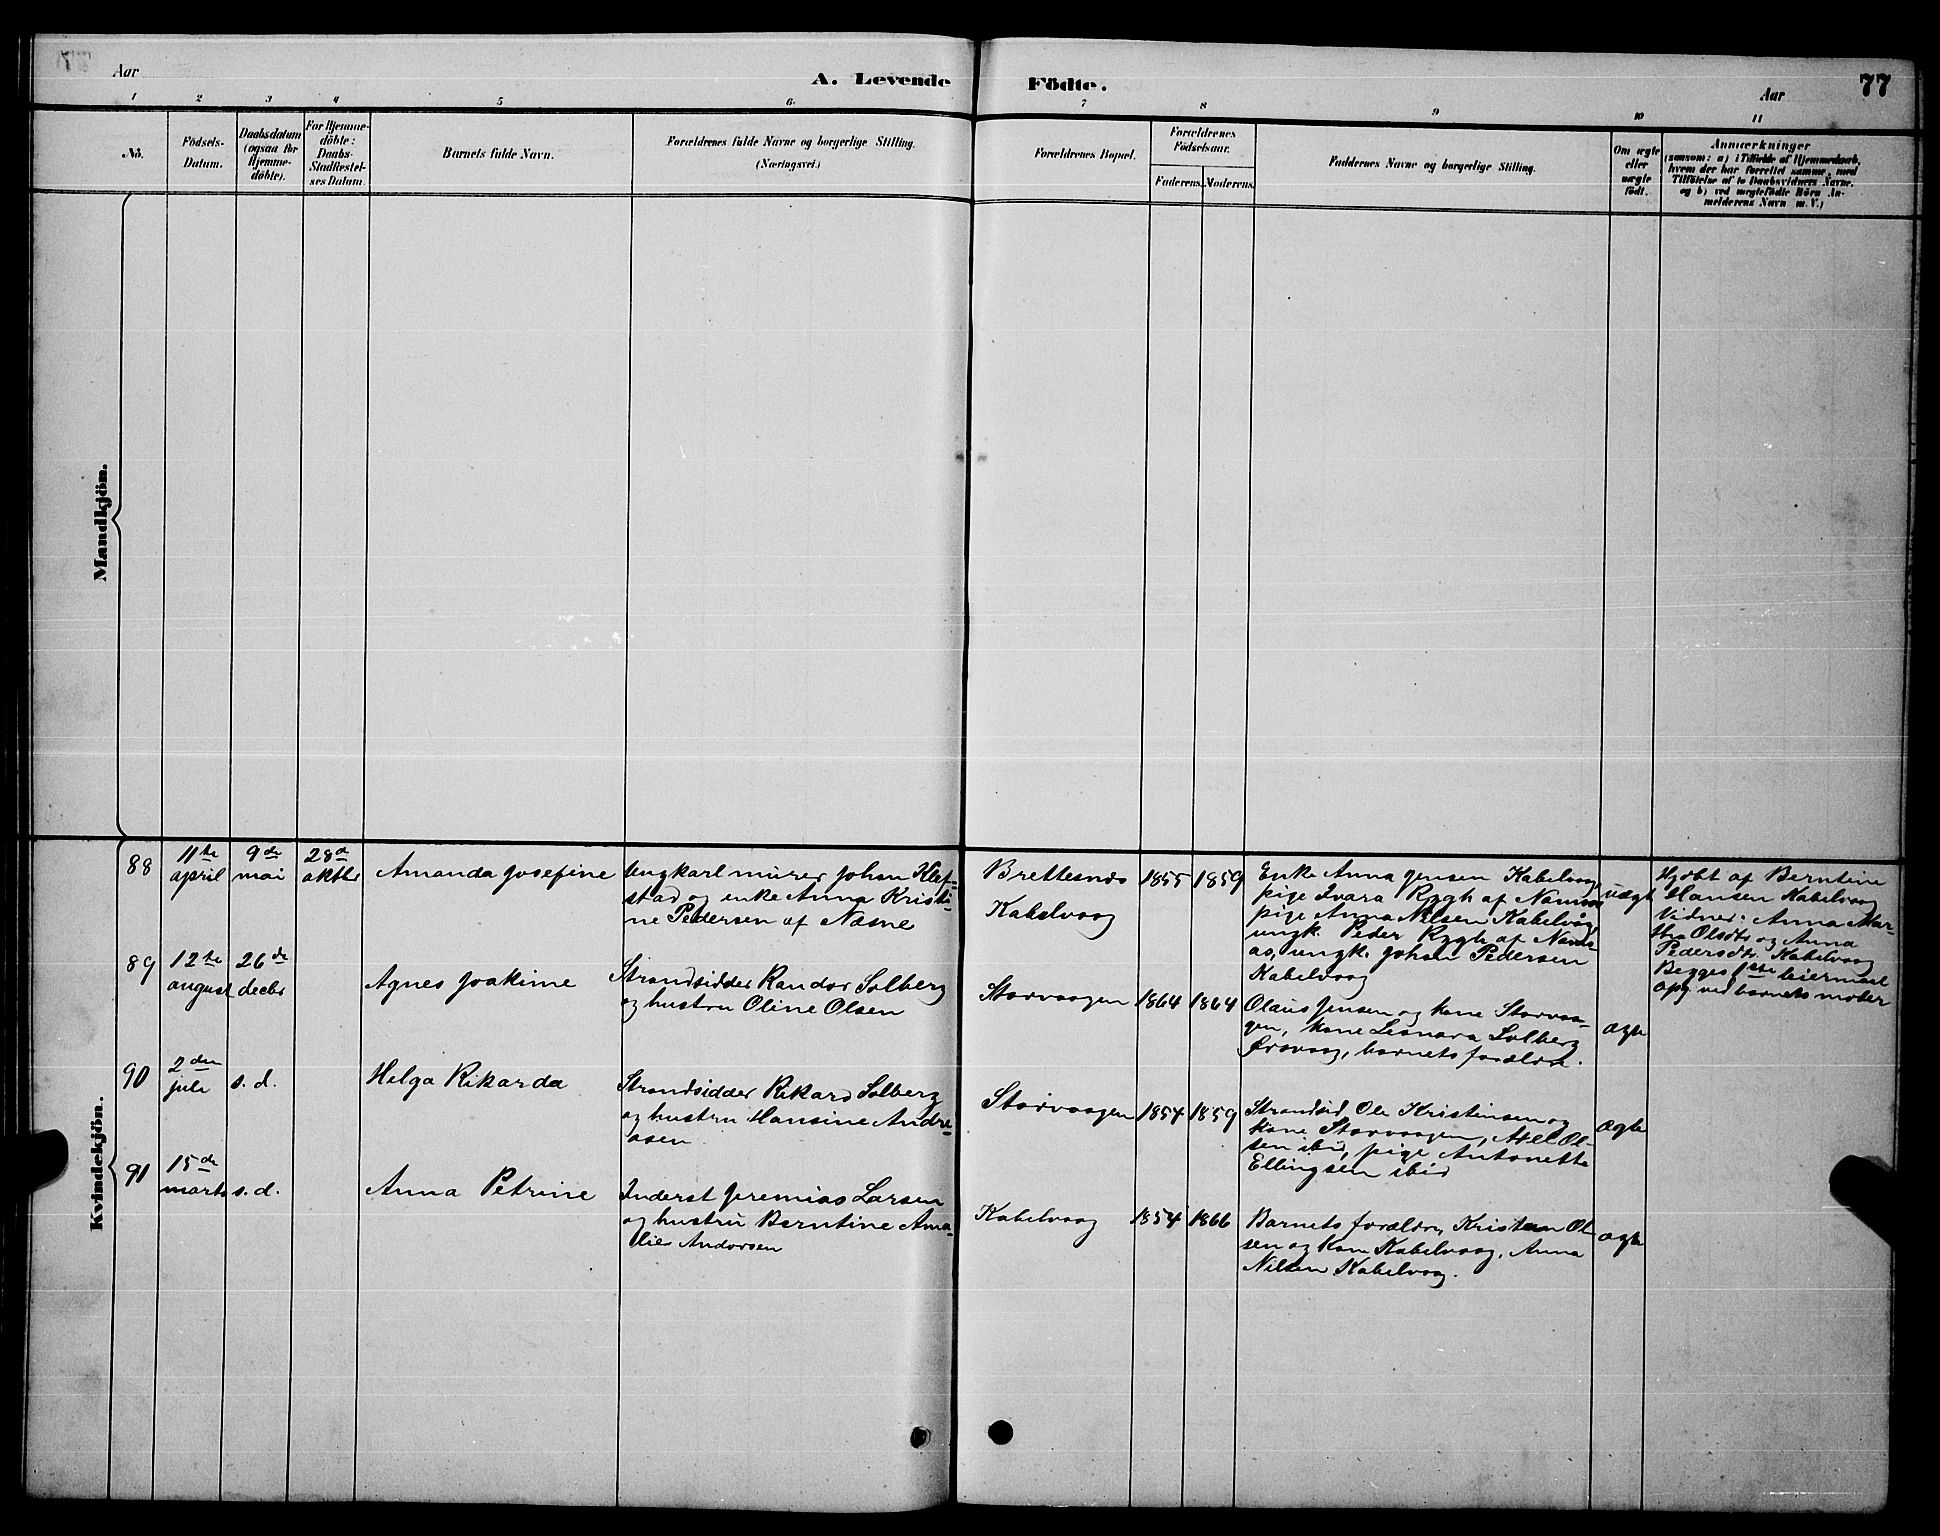 Aar
A. Levende
Födte.
Aar
77
1 2 3 4 5 6. 7 8 9 10 11
No.
Födsels-
Datum.
Daabsdatum
(ogsaa for
Hjemme-
döbte).
For Hjemme-
döbte:
Daabs-
Stadfæstel-
ses Datum.
Barnets fulde Navn.
Forældrenes fulde Navne og borgerlige Stilling.
(Næringsvei.)
Forældrenes Bopæl.
Forældrenes
Födselsaar.
Faderens. Moderens.
Faddernes Navne og borgerlige Stilling.
Om ægte
eller
uægte
födt.
Anmærkninger
(saasom: a) i Tilfælde af Hjemmedaab,
hvem der har forrettet samme, med
Tilföielse af to Daabsvidners Navne.
og b) ved uægtefödte Börn An-
melderens Navn m.V.)
Mandkjön.
Kvindekjön.
88
11te
april
9de
mai
28d
oktbr
Amanda Josefine
Ungkarl murer Johan Klef-
stad og enke Anna Kristi-
ne Pedersen af Nesne
Brettesnes
Kabelvaag
1855 1859
Enke Anna Jensen Kabelvaag,
pige Ivara Rygh af Namsos
pige Anna Nilsen Kabelvåg,
ungk. Peder Rygh af Nams-
os, ungk. Johan Pedersen
Kabelvaag
uægt
Hjdbt af Berntine
Hansen Kabelvaag
Vidner: Anna Mar-
tha Olsdtr og Anna
Pedersdtr. Kabelvaag
Begges 1ste leiermaal
opg. ved barnets moder
89
12te
august
26de
decbr
Agnes Joakime
Strandsidder Randor Solberg
og hustru Oline Olsen
Storvaagen
1864 1864
Olaus Jensen og kone Storvaa-
gen, kone Leonara Solberg
Ørsvaag, barnets forældre.
ægte
90
2den
juli
s. d.
Helga Rikarda
Strandsidder Rikard Solberg
og hustru Hansine Andre-
asen
Storvaagen
1854 1859
Strandsid. Ole Kristensen og
kone Storvaagen, Axel Ol-
sen ibid, pige Antonette
Ellingsen ibid
ægte
91
15de
marts
s. d.
Anna Petrine
Inderst Jeremias Larsen
og hustru Berntine Ama-
lie Andersen
Kabelvaag
1854 1866
Barnets forældre, Kristian Ol-
sen og kone Kabelvaag, Anna
Nilsen Kabelvaag.
ægte